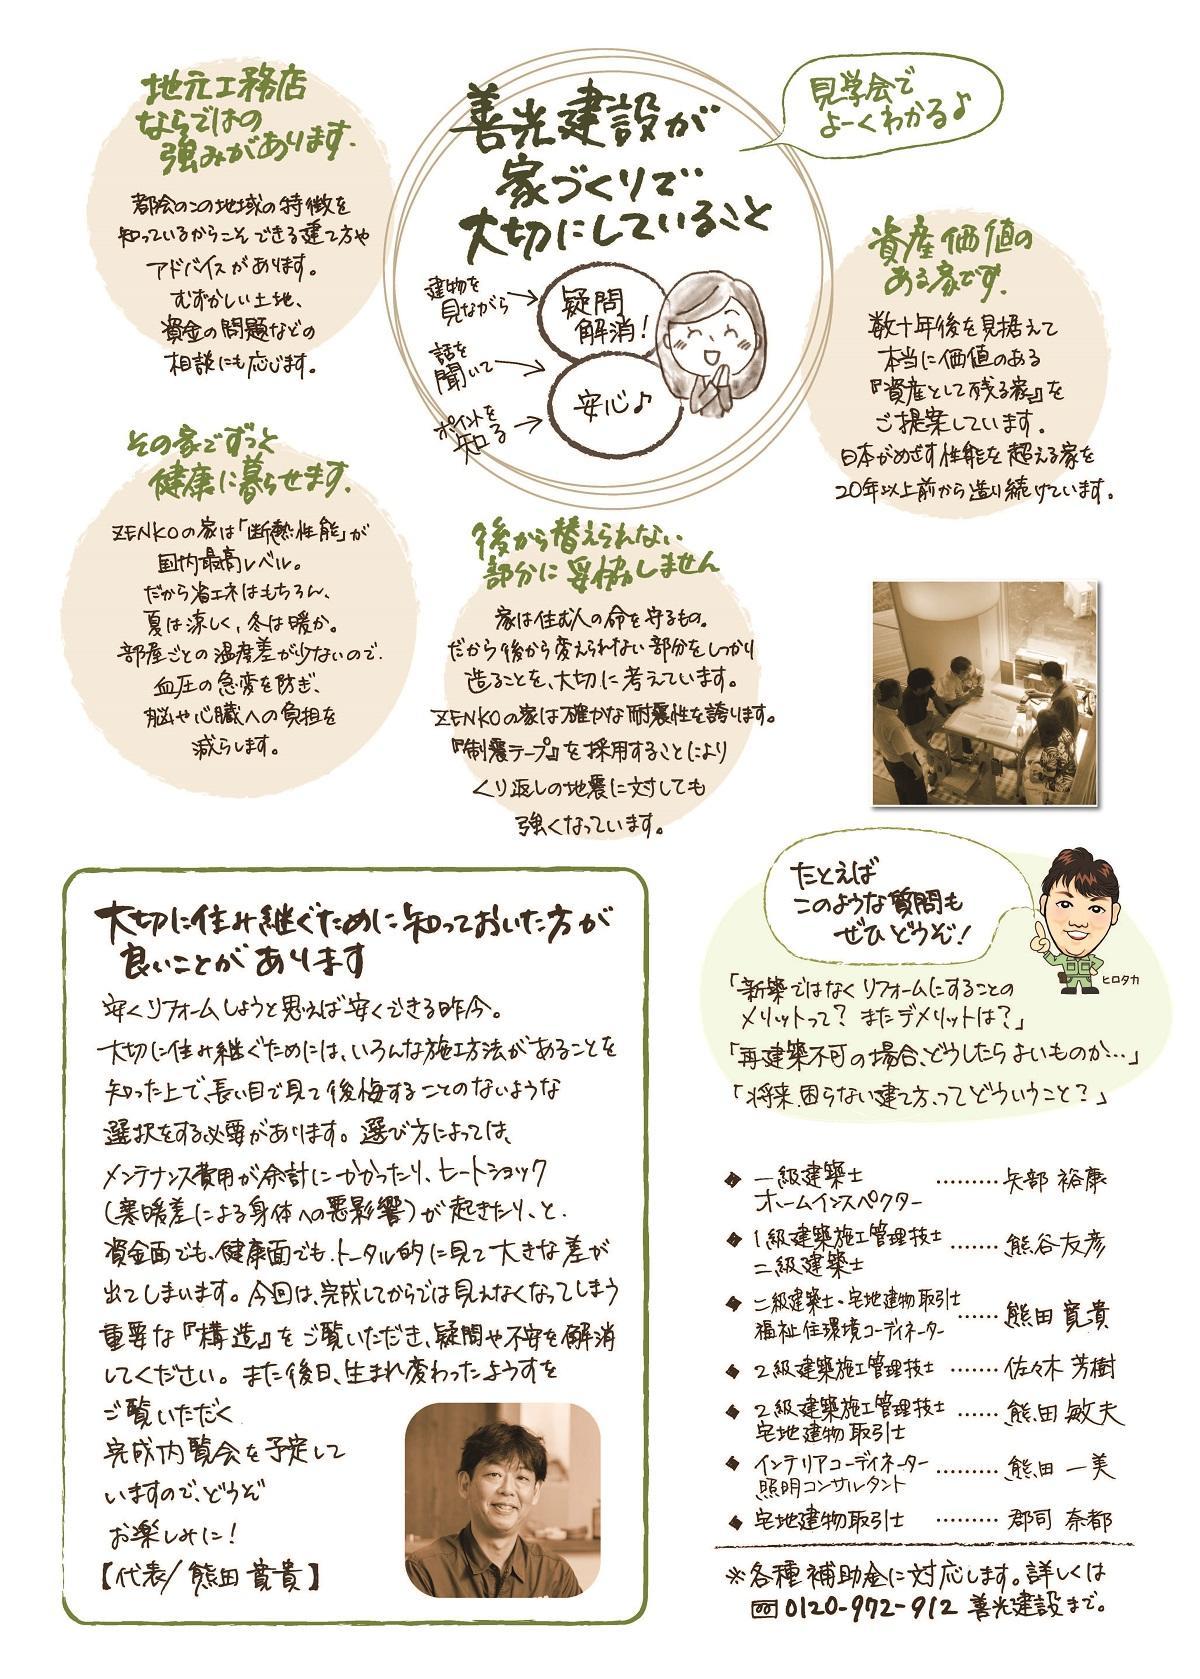 地元工務店
ならではの
強みがあります.
都会のこの地域の特徴を
知っているからこそできる建て方や
アドバイスがあります。
むずかしい土地、
資金の問題などの
相談にも応じます。
善光建設が
家づくりで
大切にしていること
見学会で
よーくわかる♪
建物を
見ながら
疑問
解消!
話を
聞いて
安心♪
ポイントを
知る
資産価値の
ある家です.
数十年後を見据えて
本当に価値のある
『資産として残る家』を
ご提案しています.
日本がめざす性能を超える家を
20年以上前から造り続けています.
その家でずっと
健康に暮らせます.
ZENKOの家は「断熱性能」が
国内最高レベル。
だから省エネはもちろん、
夏は涼しく、冬は暖か。
部屋ごとの温度差が少ないので、
血圧の急変を防ぎ、
脳や心臓への負担を
減らします。
後から替えられない
部分に妥協しません
家は住む人の命を守るもの。
だから後から変えられない部分をしっかり
造ることを、大切に考えています。
ZENKOの家は確かな耐震性を誇ります。
『制震テープ』を採用することにより
くり返しの地震に対しても
強くなっています。
大切に住み継ぐために知っておいた方が
良いことがあります
安くリフォームしようと思えば安くできる昨今。
大切に住み継ぐためには、いろんな施工方法があることを
知った上で、長い目で見て後悔することのないような
選択をする必要があります。選び方によっては、
メンテナンス費用が余計にかかったり、ヒートショック
(寒暖差による身体への悪影響)が起きたり、と、
資金面でも、健康面でも、トータル的に見て大きな差が
出てしまいます。今回は、完成してからでは見えなくなってしまう
重要な『構造』をご覧いただき、疑問や不安を解消
してください。また後日、生まれ変わったようすを
ご覧いただく
完成内覧会を予定して
いますので、どうぞ
お楽しみに!
【代表/熊田寛貴】
たとえば
このような質問も
ぜひどうぞ!
ヒロタカ
「新築ではなくリフォームにすることの
メリットって? またデメリットは?」
「再建築不可の場合、どうしたらよいものか…」
「将来、困らない建て方、ってどういうこと?」
◆ 一級建築士
ホームインスペクター ………矢部 裕康
◆ 1級建築施工管理技士
二級建築士 ……熊谷友彦
◆ 二級建築士・宅地建物取引士
福祉住環境コーディネーター ……熊田 寛貴
◆ 2級建築施工管理技士 ……佐々木 芳樹
◆ 2級建築施工管理技士
宅地建物取引士 ……熊田 敏夫
◆ インテリアコーディネーター
照明コンサルタント ………熊田 一美
◆ 宅地建物取引士 ………郡司 奈都
※各種補助金に対応します。詳しくは
0120-972-912 善光建設まで。